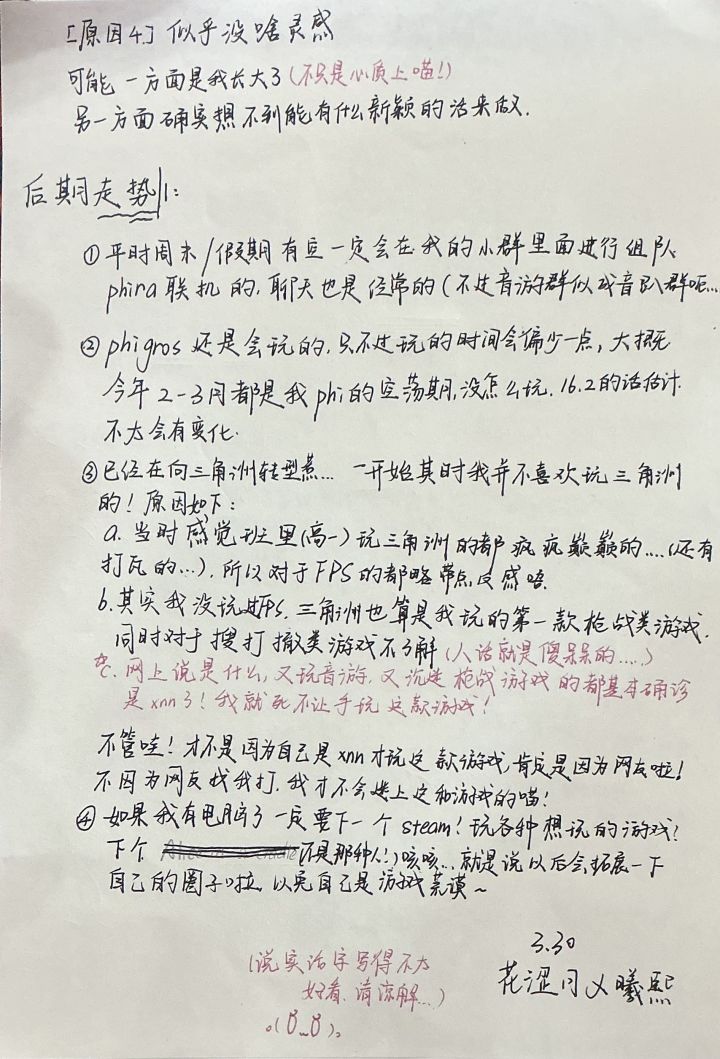 [原因4.] 似乎没啥灵感
可能一方面是我长大了(不只是心质上喵!)
另一方面确实想不到能有什么新颖的活来做.
后期走势:
① 平时周末/假期有空一定会在我的小群里面进行组队
phira联机的, 聊天也是经常的(不过音游群似戏音趴群呃...
② phigros 还是会玩的, 只不过玩的时间会偏少一点, 大概
今年2-3月都是我phi的空荡期, 没怎么玩. 16.2的话估计
不太会有变化.
③ 已经在向三角洲转型惹... 一开始其时我并不喜欢玩三角洲
的! 原因如下:
a. 当时感觉班里(高一)玩三角洲的都疯疯巅巅的....(还有
打瓦的...), 所以对于FPS的都略带点反感唔.
b. 其实我没玩过FPS, 三角洲也算是我玩的第一款枪战类游戏.
同时对于搜打撤类游戏不了解(人话就是傻呆呆的.....)
c. 网上说是什么, 又玩音游, 又玩这枪战游戏的都基本确诊
是xnn了! 我就死不让手玩这款游戏!
不管哇! 才不是因为自己是xnn才玩这款游戏, 肯定是因为网友啦!
不因为网友找我打, 我才不会迷上这种游戏的喵!
④ 如果我有电脑了一定要下一个steam! 玩各种想玩的游戏?
下个 (不是那种人!) 咳咳... 就是说以后会拓展一下
自己的圈子啦, 以免自己是游戏荒漠~
3.30
花涩月乂曦熙
(说实话字写得不太
好看, 请谅解...)